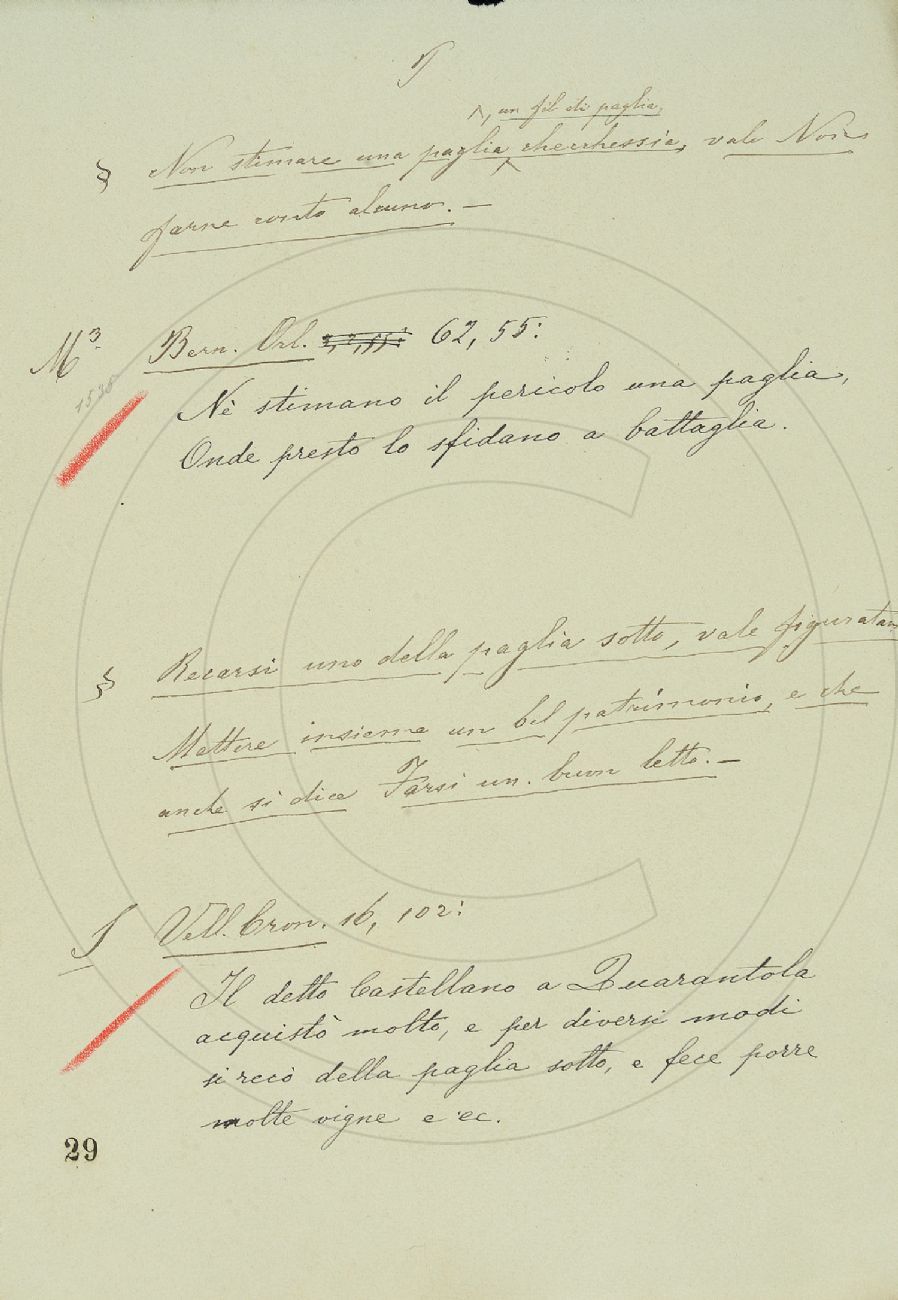 , un fil di paglia,
§ Non stimare una paglia checchessia, vale Non
farne conto alcuno. —
M3. Bern. Orl. 62, 55:
Nè stimano il pericolo una paglia,
Onde presto lo sfidano a battaglia.
§ Recarsi uno della paglia sotto, vale figuratam
Mettere insieme un bel patrimonio, e che
anche si dice Farsi un buon letto. —
S Vell. Cron. 16, 102:
Il detto Castellano a Quarantola
acquistò molto, e per diversi modi
si recò della paglia sotto, e fece porre
molte vigne e ec.
29